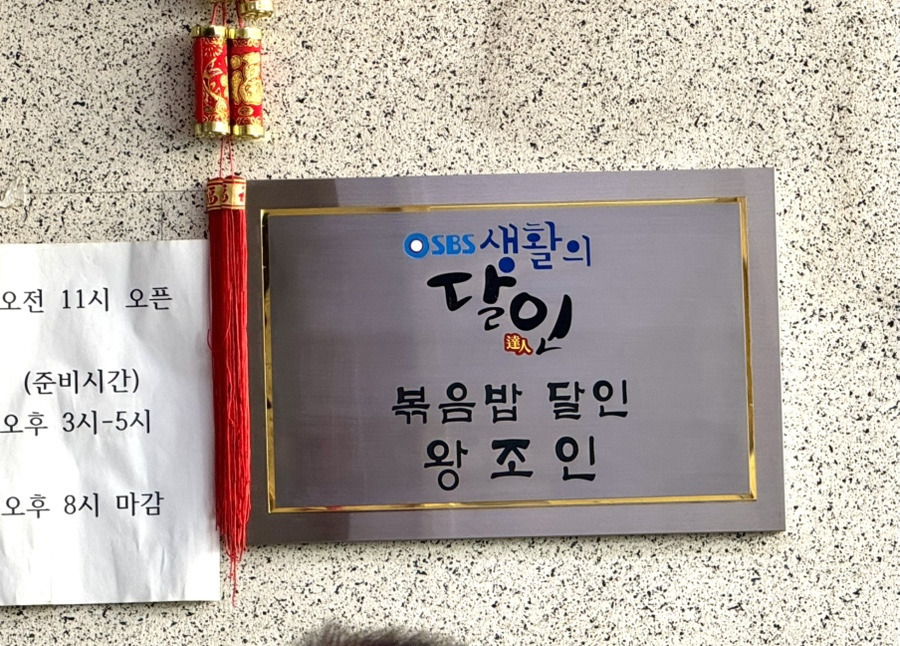 오전 11시 오픈
(준비시간)
오후 3시-5시
오후 8시 마감
SBS 생활의
달인
達人
볶음밥 달인
왕조인